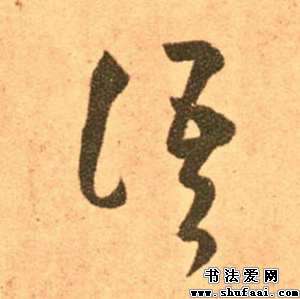 语
书法爱网
www.shufaai.com